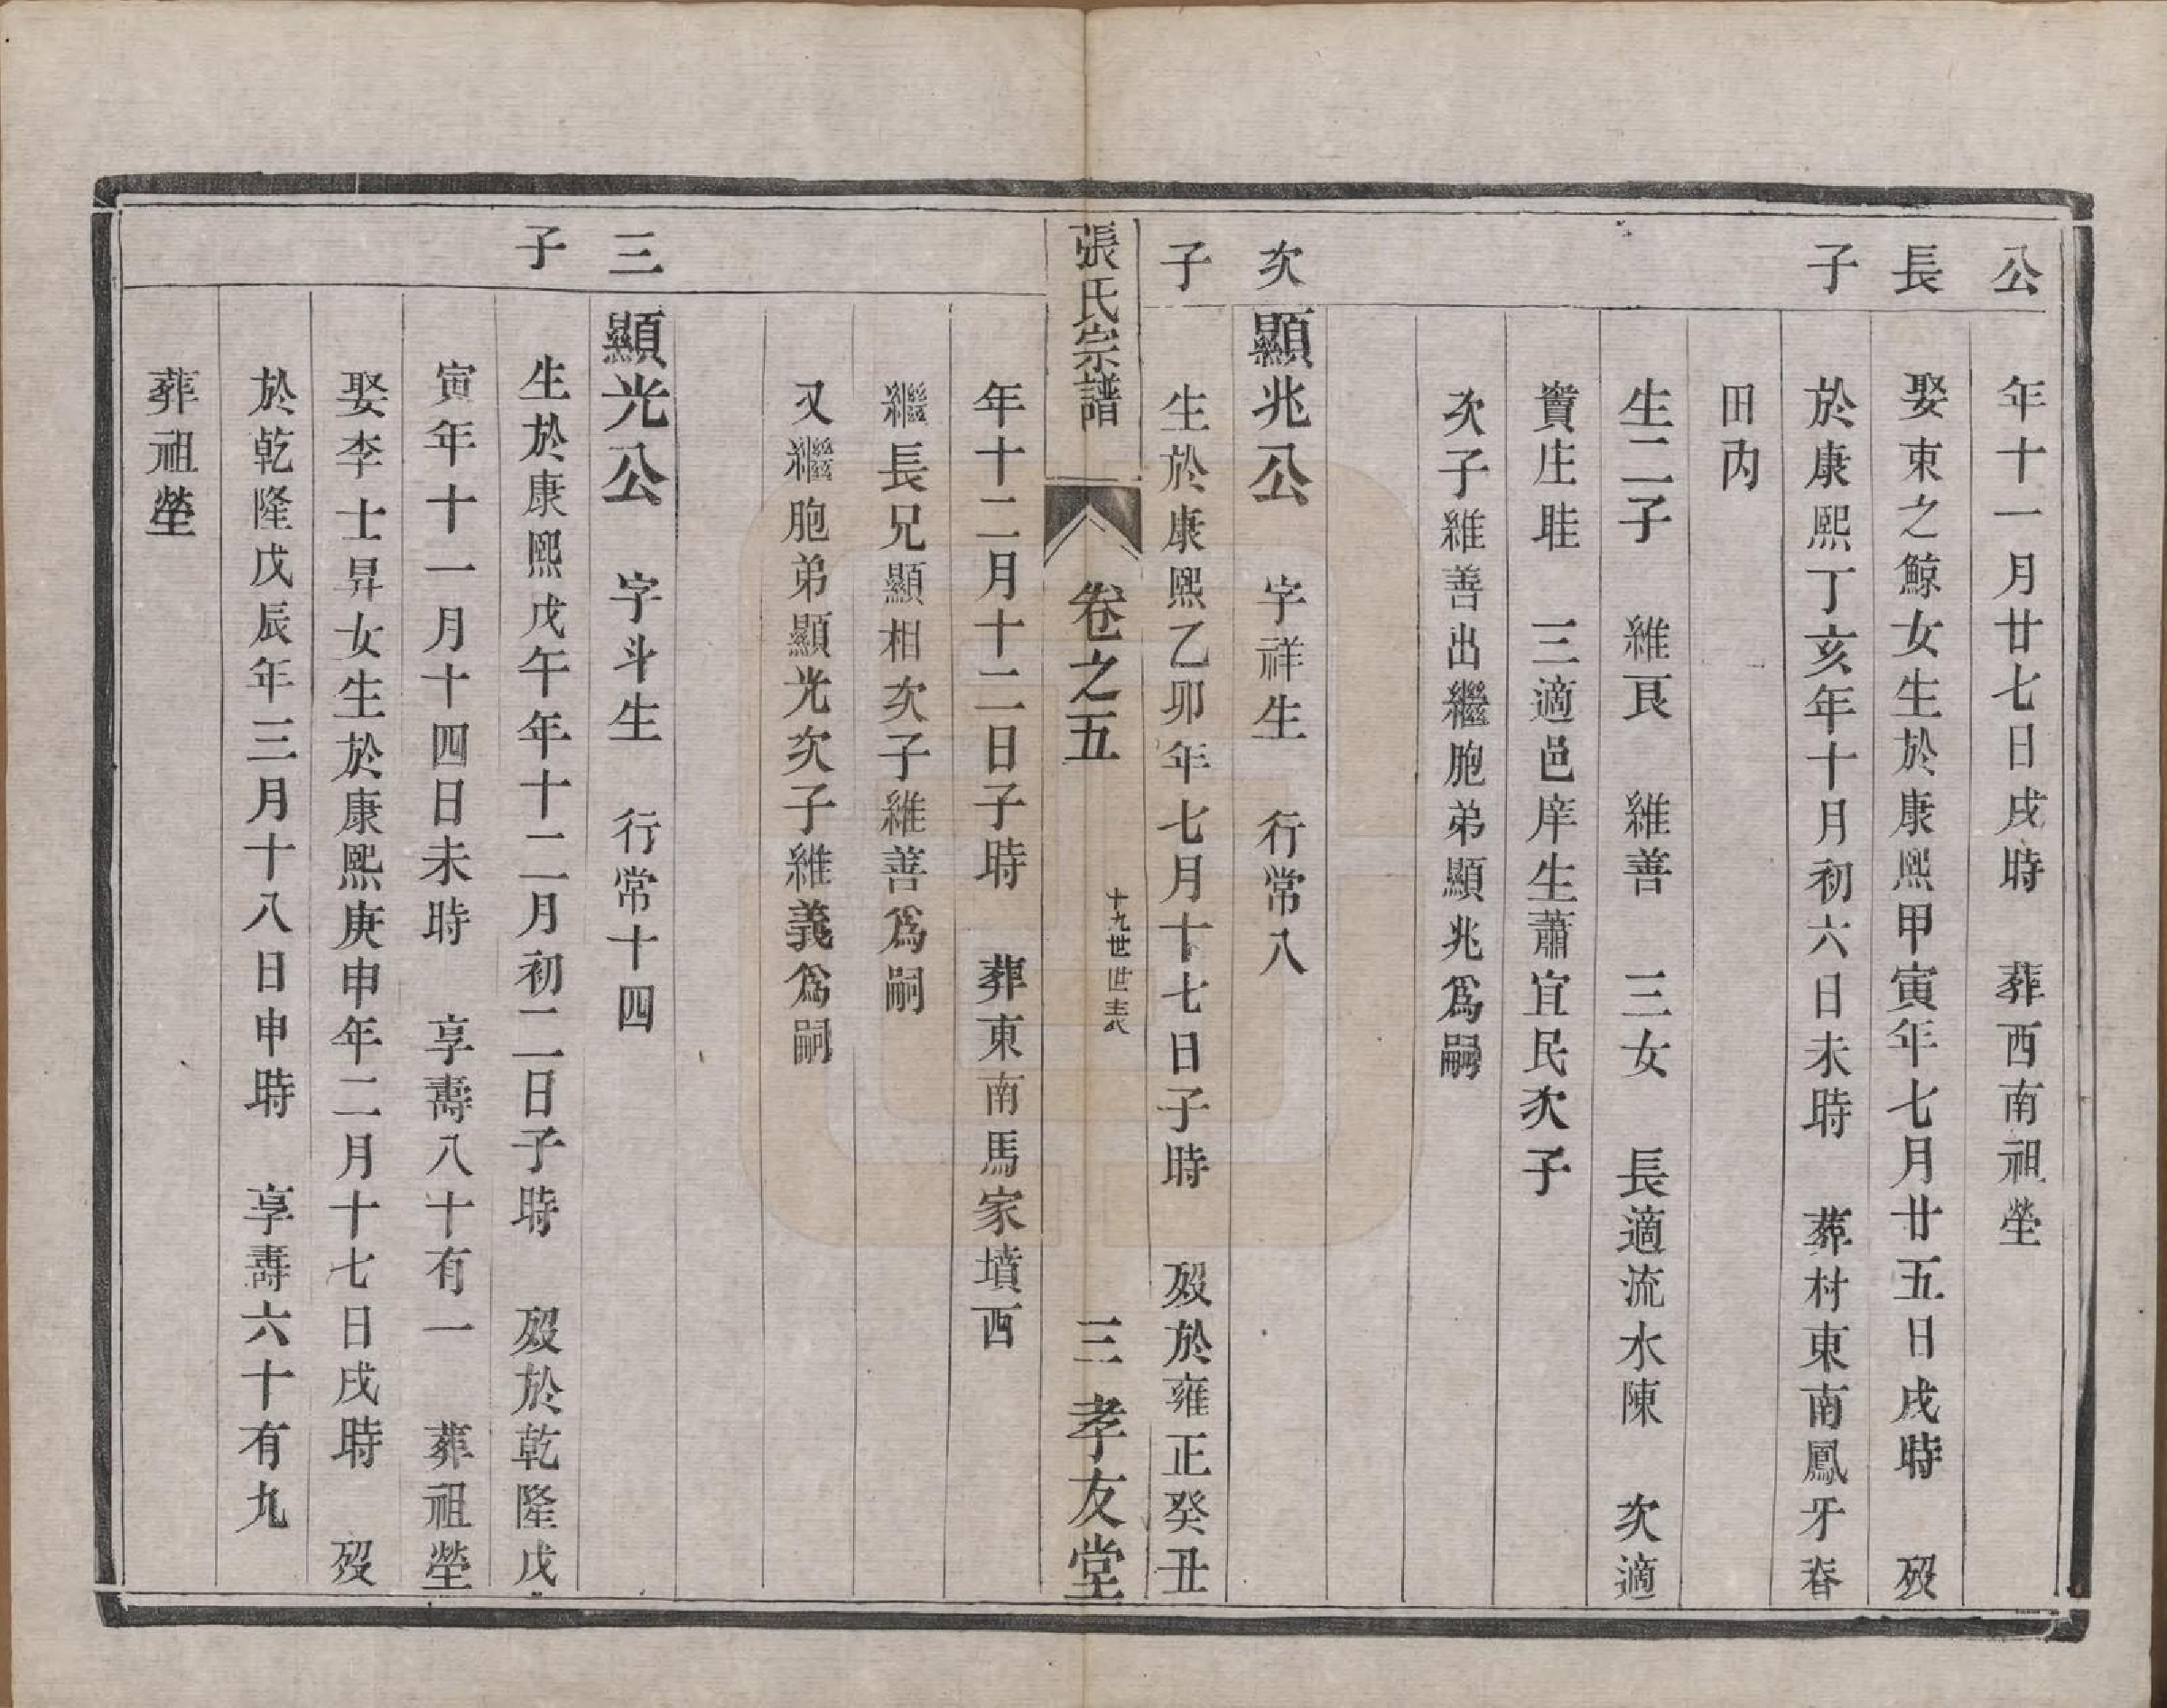 公
年十一月廿七日戌時　葬西南祖塋
長
娶東之鯨女生於康熙甲寅年七月廿五日戌時　歿
子
於康熙丁亥年十月初六日未時　葬村東南鳳牙春
田內
生二子　維良　維善　三女　長適流水陳　次適
竇庄眭　三適邑庠生蕭宜民次子
次子維善出繼胞弟顯兆為嗣
次
顯兆公　字祥生　行常八
子
生於康熙乙卯年七月十七日子時　歿於雍正癸丑
張氏宗譜　卷之五　十九世世表　三　孝友堂
年十二月十二日子時　葬東南馬家墳西
繼長兄顯相次子維善為嗣
又繼胞弟顯光次子維義為嗣
三
顯光公　字斗生　行常十四
子
生於康熙戊午年十二月初二日子時　歿於乾隆戊
寅年十一月十四日未時　享壽八十有一　葬祖塋
娶李士昇女生於康熙庚申年二月十七日戌時　歿
於乾隆戊辰年三月十八日申時　享壽六十有九
葬祖塋